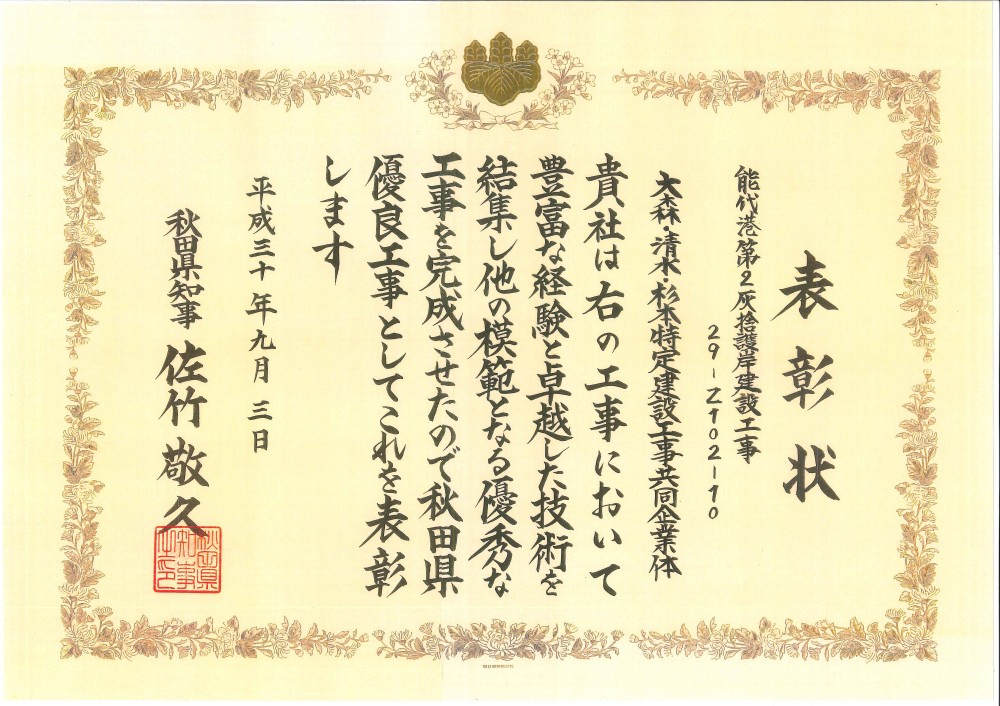 表彰状
能代港第2灰捨護岸建設工事
29-Z102-10
大森・清水・杉本特定建設工事共同企業体
貴社は右の工事において
豊富な経験と卓越した技術を
結集し他の模範となる優秀な
工事を完成させたので秋田県
優良工事としてこれを表彰
します
平成三十年九月三日
秋田県知事 佐竹敬久